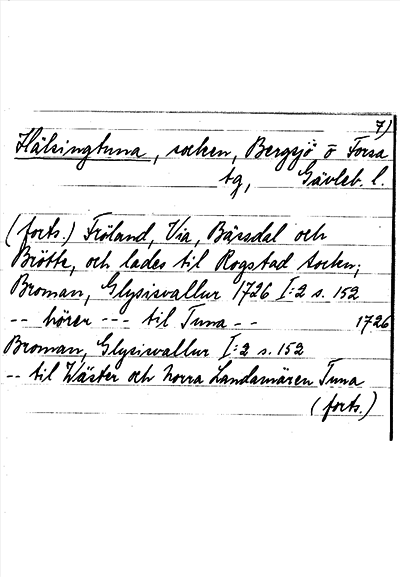 7)
Hälsingtuna, socken, Bergsjö o Forsa
tg, Gävleb. l.
(forts.) Fröland, Via, Bärsdal och
Brötte, och lades til Rogstad socken;
Broman, Glysisvallur 1726 I:2 s. 152
-- hörer --- til Tuna -- 1726
Broman, Glysisvallur I:2 s. 152
-- til Wäster och norra Landamären Tuna
(forts.)